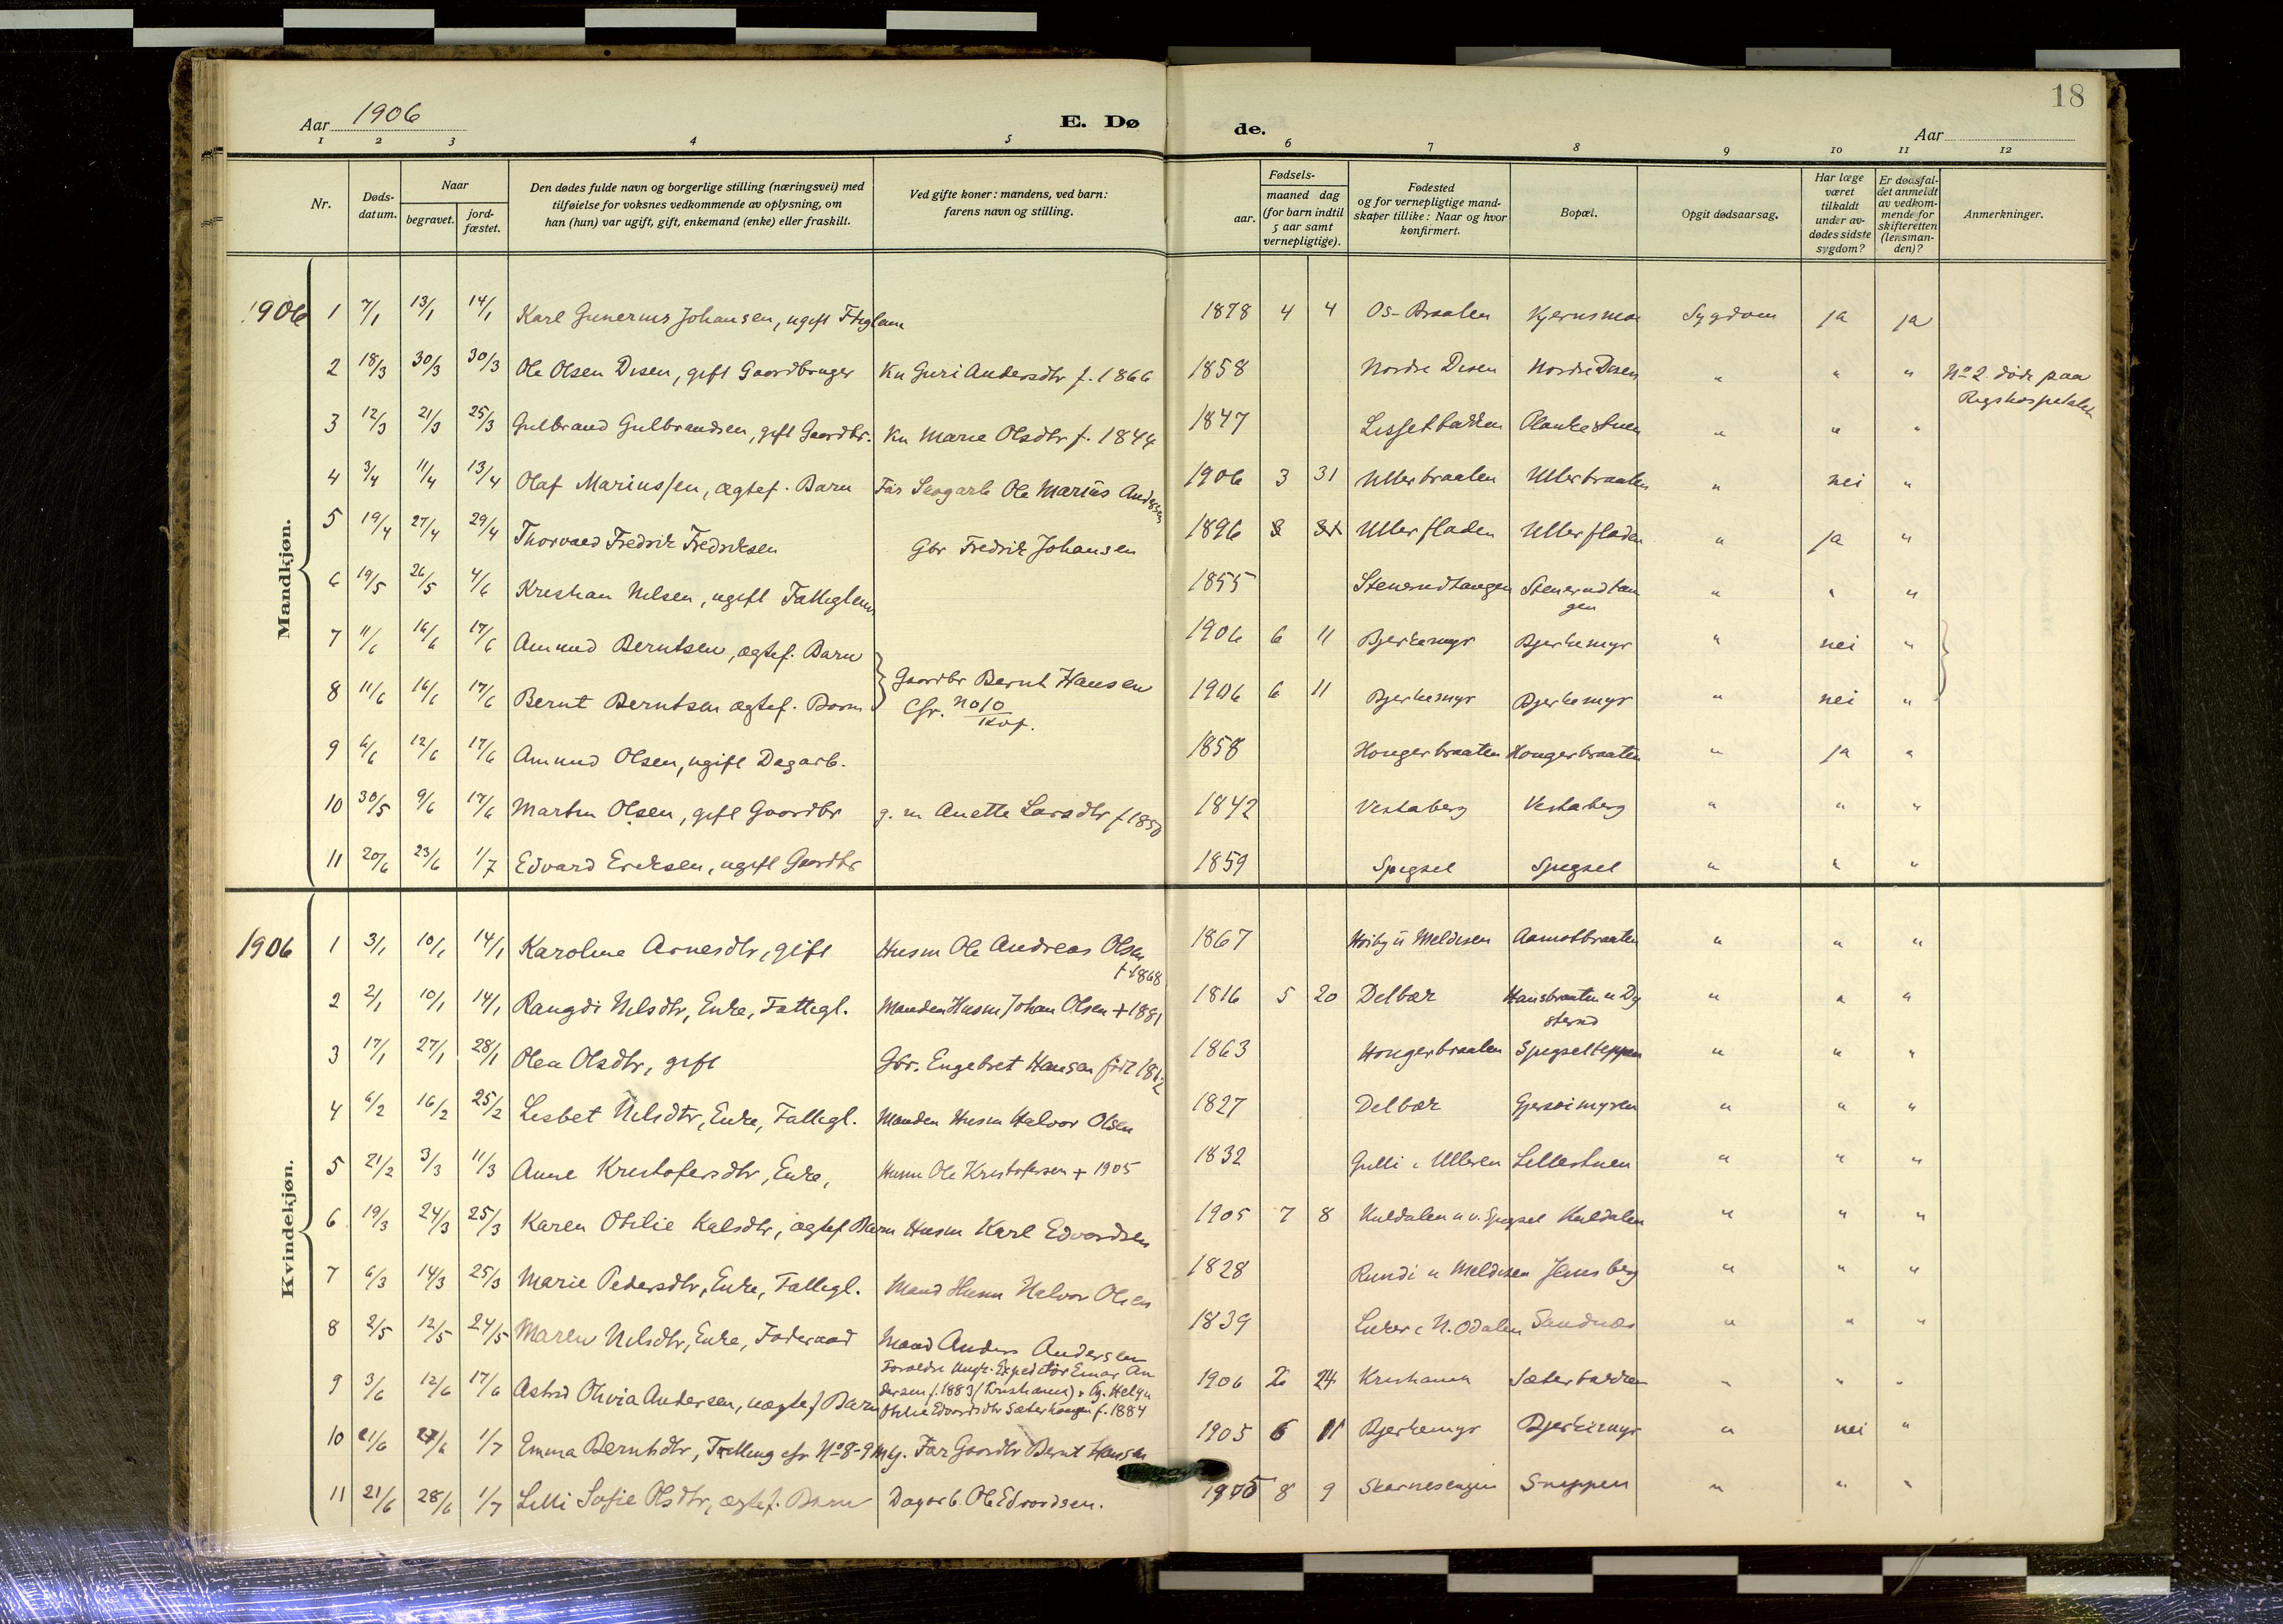 18
Aar 1906
E. Dø de.
Aar
1 2 3 4 5 6 7 8 9 10 11 12
Nr.
Døds-datum.
Naar
begravet.
jord-fæstet.
Den dødes fulde navn og borgerlige stilling (næringsvei) med
tilføielse for voksnes vedkommende av oplysning, om
han (hun) var ugift, gift, enkemand (enke) eller fraskilt.
Ved gifte koner: mandens, ved barn:
farens navn og stilling.
Fødsels-
aar.
maaned dag
(for barn indtil
5 aar samt
vernepligtige).
Fødested
og for vernepligtige mand-
skaper tillike: Naar og hvor
konfirmert.
Bopæl.
Opgit dødsaarsag.
Har læge
været
tilkaldt
under av-
dødes sidste
sygdom?
Er dødsfal-
det anmeldt
av vedkom-
mende for
skifteretten
(lensman-
den)?
Anmerkninger.
Mandkjøn.
1906 1 7/1 13/1 14/1 Karl Gunerius Johansen, ugift Ftiglem 1878 4 4 Os-Braaten Kjernsmoe Sygdom ja ja
2 18/3 30/3 30/3 Ole Olsen Disen, gift Gaardbruger Kn Guri Andersdtr f. 1866 1858 Nordre Disen Nordre Disen " " " No 2 døde paa
Rigshospitalet
3 12/3 21/3 25/3 Gulbrand Gulbrandsen, gift Gaardbr. Kn Marie Olsdtr f. 1844 1847 Lissetbakken Plankestuen " " "
4 3/4 11/4 13/4 Olaf Mariussen, ægtef. Barn Far Skogarb Ole Marius Andersen 1906 3 31 Ullerbraaten Ullerbraaten " nei "
5 19/4 27/4 29/4 Thorvald Fredrik Fredriksen Gbr Fredrik Johansen 1896 Ullerfladen Ullerfladen " ja "
6 19/5 26/5 4/6 Kristian Nilsen, ugift Fattiglem 1855 Stenerudtangen Stenerudtan
gen " " "
7 11/6 16/6 17/6 Amund Berntsen, ægtef. Barn 1906 6 11 Bjerkemyr Bjerkemyr " nei "
Gaardbr Bernt Hansen
Cfr. no 10
Kvf.
8 11/6 16/6 17/6 Bernt Berntsen ægtef. Barn 1906 6 11 Bjerkemyr Bjerkemyr " nei "
9 6/6 12/6 17/6 Amund Olsen, ugift Dagarb. 1858 Hongerbraaten Hongerbraaten " ja "
10 30/5 9/6 17/6 Martin Olsen, gift Gaardbr g. m Anette Larsdtr f 1850 1842 Vestaberg Vestaberg " " "
11 20/6 23/6 1/7 Edvard Eriksen, ugift Gaardbr 1859 Spigsel Spigsel " " "
Kvindekjøn.
1906 1 3/1 10/1 14/1 Karoline Arnesdtr, gift Husm Ole Andreas Olsen
f. 1868 1867 Høiby u Meldisen Aamotbraaten " " "
2 2/1 10/1 14/1 Rangdi Nilsdtr, Enke, Fattigl. Manden Husm Johan Olsen + 1881 1816 5 20 Delbæk Hansbraaten u Dy
sterud " " "
3 17/1 27/1 28/1 Olea Olsdtr, gift Gbr. Engebret Hansen født 1862 1863 Hongerbraaten Spigselteppen " " "
4 6/2 16/2 25/2 Lisbet Nilsdtr, Enke, Fattigl. Manden Husm Halvor Olsen 1827 Delbæk Gjersøimyren " " "
5 21/2 3/3 11/3 Anne Kristofersdtr, Enke, Husm Ole Kristofersen + 1905 1832 Gulli i Ulleren Lillestuen " " "
6 19/3 24/3 25/3 Karen Otilie Kalsdtr, ægtef Barn Husm Karl Edvardsen 1905 7 8 Kuldalen u v. Spigsel Kuldalen " " "
7 6/3 14/3 25/3 Marie Pedersdtr, Enke, Fattigl. Mand Husm Halvor Olsen 1828 Rundi u Meldisen Jensberg " " "
8 2/5 12/5 24/5 Maren Nilsdtr, Enke, Føderaad Mand Anders Andersen 1839 Luker i N. Odalen Sandnæs " " "
9 3/6 12/6 17/6 Astrid Olivia Andersen, uægtef Barn Foreldre Ungk. Expeditør Einar An
dersen f. 1883 (Kristiania) & Pg. Helga
Otilie Edvardsdtr Sæterhaugen f. 1884 1906 2 24 Kristiania Sæterbakken " " "
10 21/6 27/6 1/7 Emma Berntsdtr, Tvilling cfr No 8-9 Mkj. Far Gaardbr Bernt Hansen 1905 6 11 Bjerkemyr Bjerkemyr " nei "
11 21/6 28/6 1/7 Lilli Sofie Olsdtr, ægtef. Barn Dagarb. Ole Edvardsen. 1905 8 9 Skarnesengen Sneppen " " "